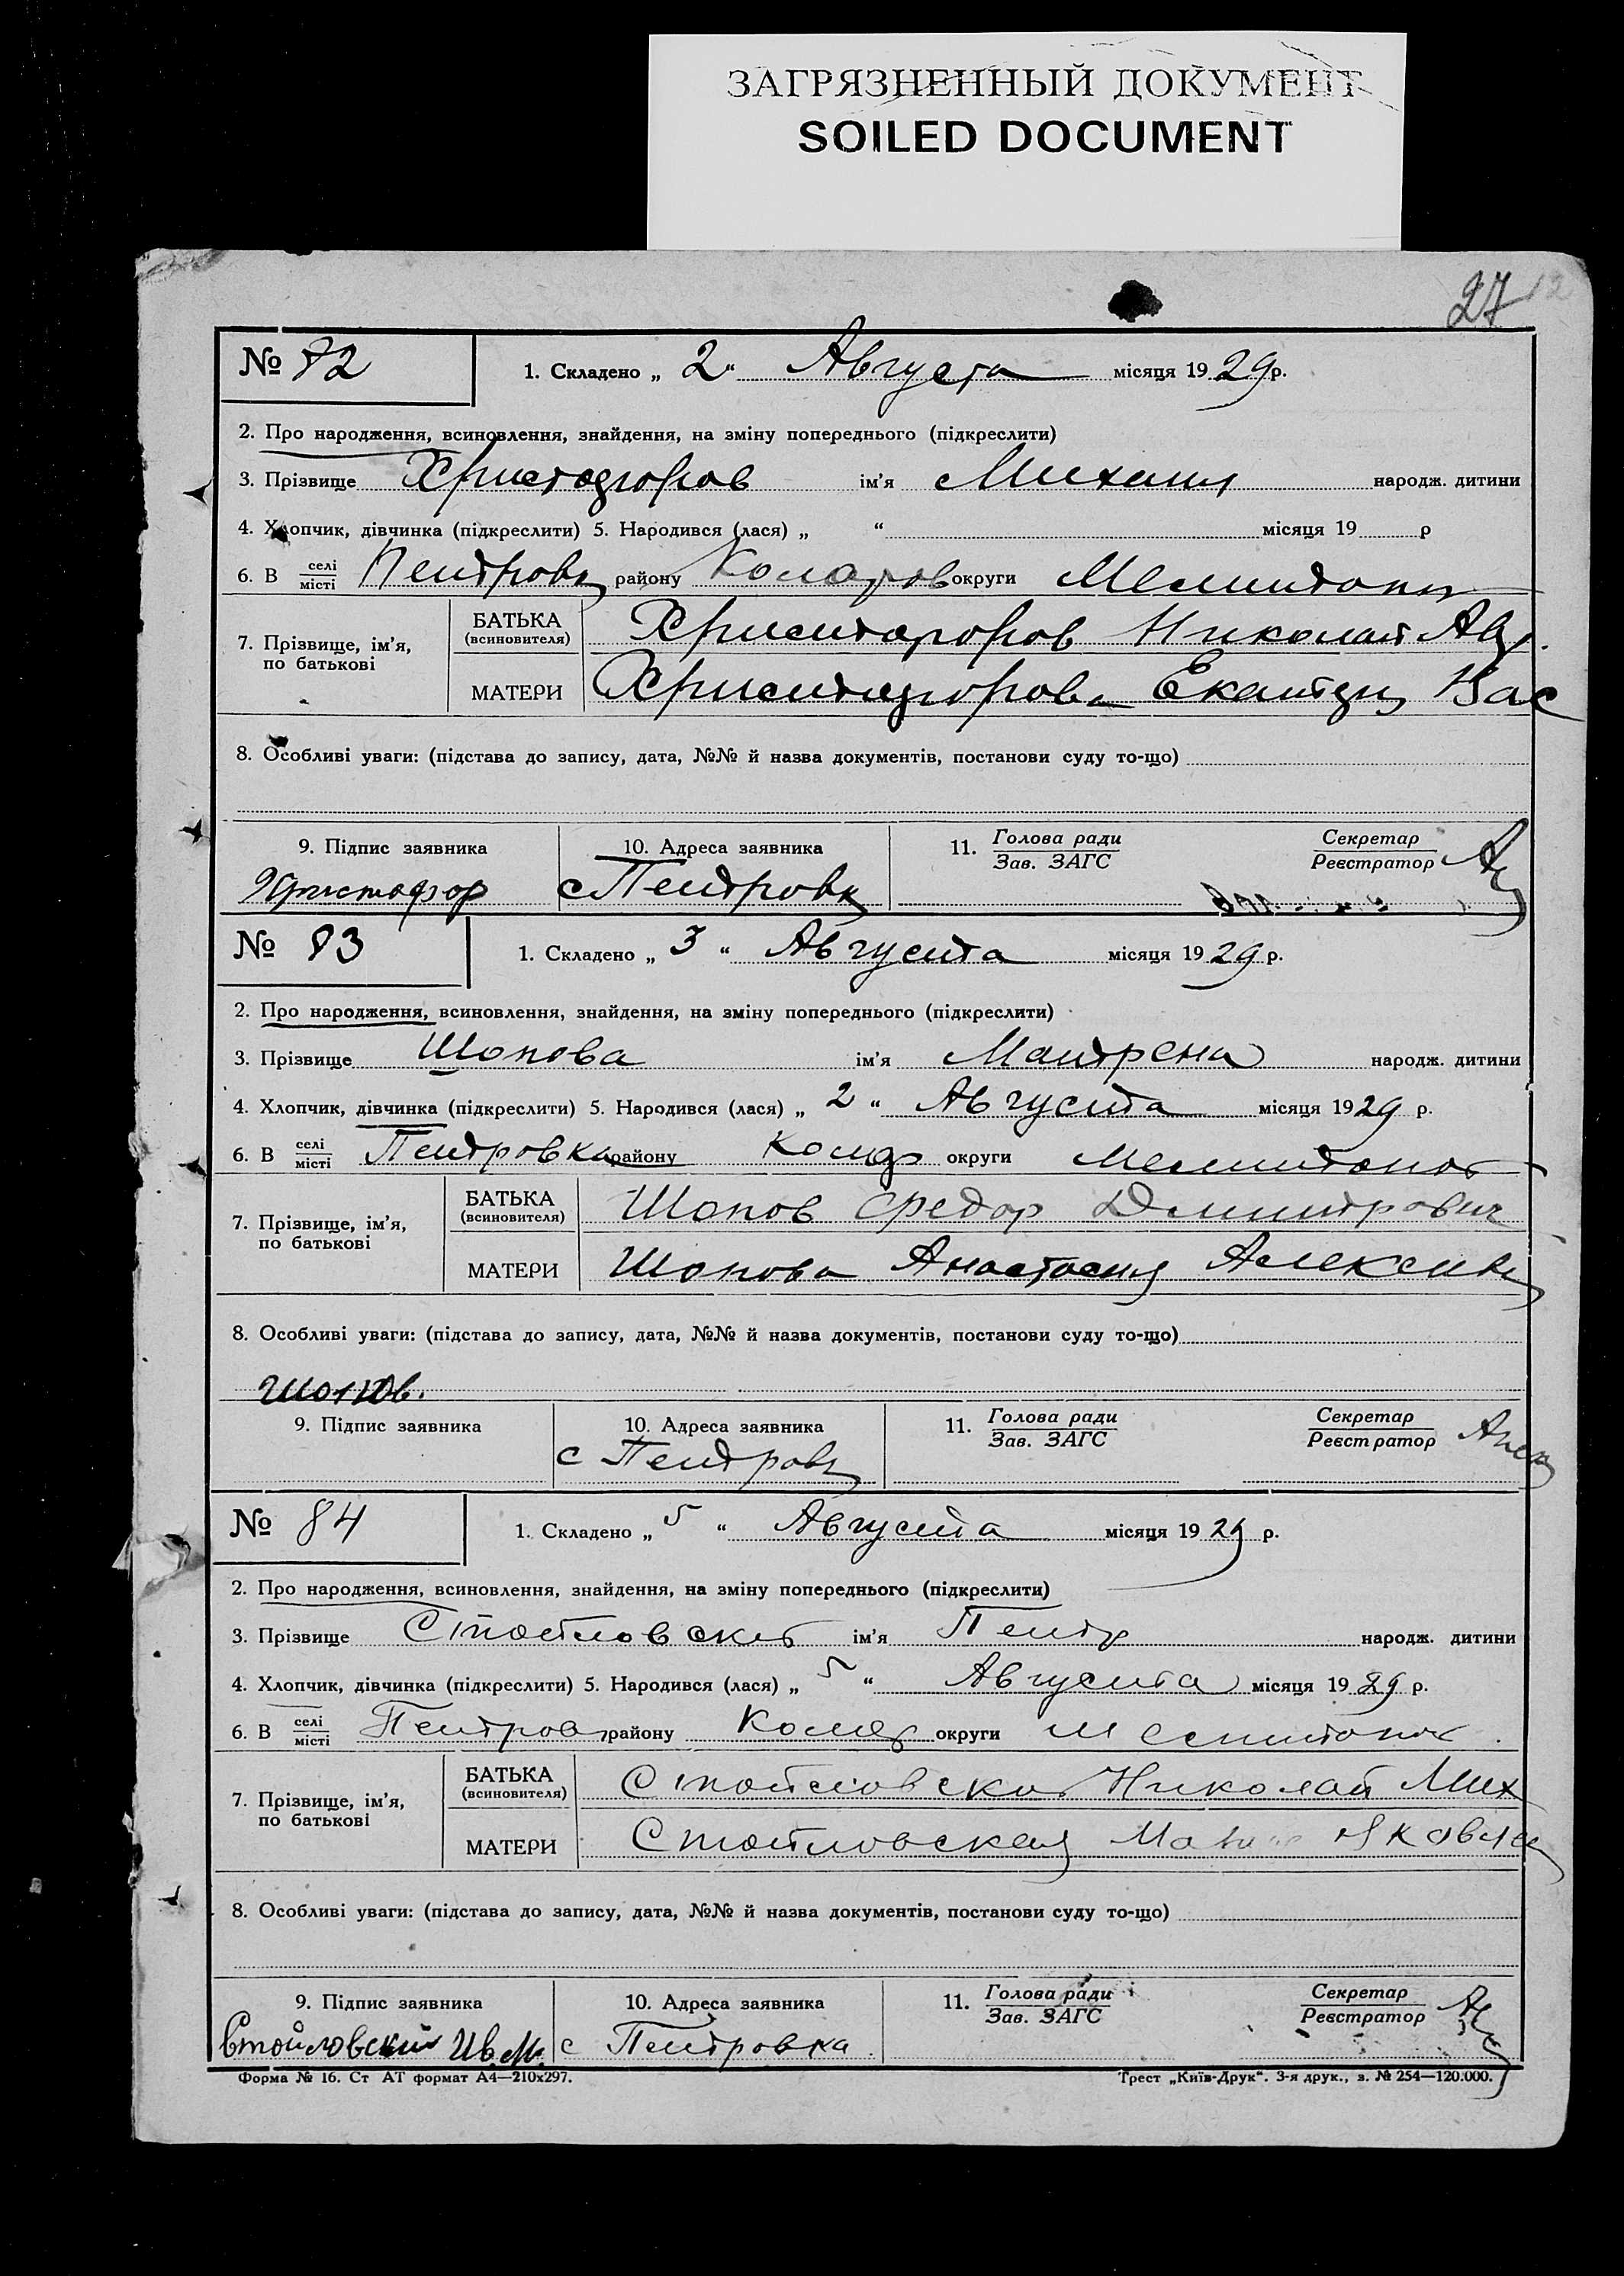 ЗАГРЯЗНЕННЫЙ ДОКУМЕНТ
SOILED DOCUMENT
27
№ 82 1. Складено „ 2 “ Августа місяця 1929 р.
2. Про народження, всиновлення, знайдення, на зміну попереднього (підкреслити)
3. Прізвище ім'я Михаил народж. дитини
4. Хлопчик, дівчинка (підкреслити) 5. Народився (лася) „ “ місяця 19 р
6. В селі/місті Петровк району Коларов округи Мелитоп
7. Прізвище, ім'я, по батькові
БАТЬКА (всиновителя) Николай
МАТЕРИ Вас
8. Особливі уваги: (підстава до запису, дата, №№ й назва документів, постанови суду то-що)
9. Підпис заявника 10. Адреса заявника 11. Голова ради/Зав. ЗАГС Секретар/Реєстратор
с Петровк
№ 83 1. Складено „ 3 “ Августа місяця 1929 р.
2. Про народження, всиновлення, знайдення, на зміну попереднього (підкреслити)
3. Прізвище Шопова ім'я Матрена народж. дитини
4. Хлопчик, дівчинка (підкреслити) 5. Народився (лася) „ 2 “ Августа місяця 1929 р.
6. В селі/місті Петровка району Коляр округи Мелитопо
7. Прізвище, ім'я, по батькові
БАТЬКА (всиновителя) Шопов Федор Дмитрович
МАТЕРИ Шопова Анастасия
8. Особливі уваги: (підстава до запису, дата, №№ й назва документів, постанови суду то-що)
Шопов.
9. Підпис заявника 10. Адреса заявника 11. Голова ради/Зав. ЗАГС Секретар/Реєстратор
с Петровк
№ 84 1. Складено „ 5 “ Августа місяця 1929 р.
2. Про народження, всиновлення, знайдення, на зміну попереднього (підкреслити)
3. Прізвище Стойловск ім'я Петр народж. дитини
4. Хлопчик, дівчинка (підкреслити) 5. Народився (лася) „ 5 “ Августа місяця 1929 р.
6. В селі/місті Петров району Коляр округи Мелитопо
7. Прізвище, ім'я, по батькові
БАТЬКА (всиновителя) Стойловск Николай Мих
МАТЕРИ Стойловская
8. Особливі уваги: (підстава до запису, дата, №№ й назва документів, постанови суду то-що)
9. Підпис заявника 10. Адреса заявника 11. Голова ради/Зав. ЗАГС Секретар/Реєстратор
Стойловский Ив. М. с Петровка
Форма № 16. Ст АТ формат А4—210х297. Трест „Київ-Друк“. 3-я друк., з. № 254—120.000.